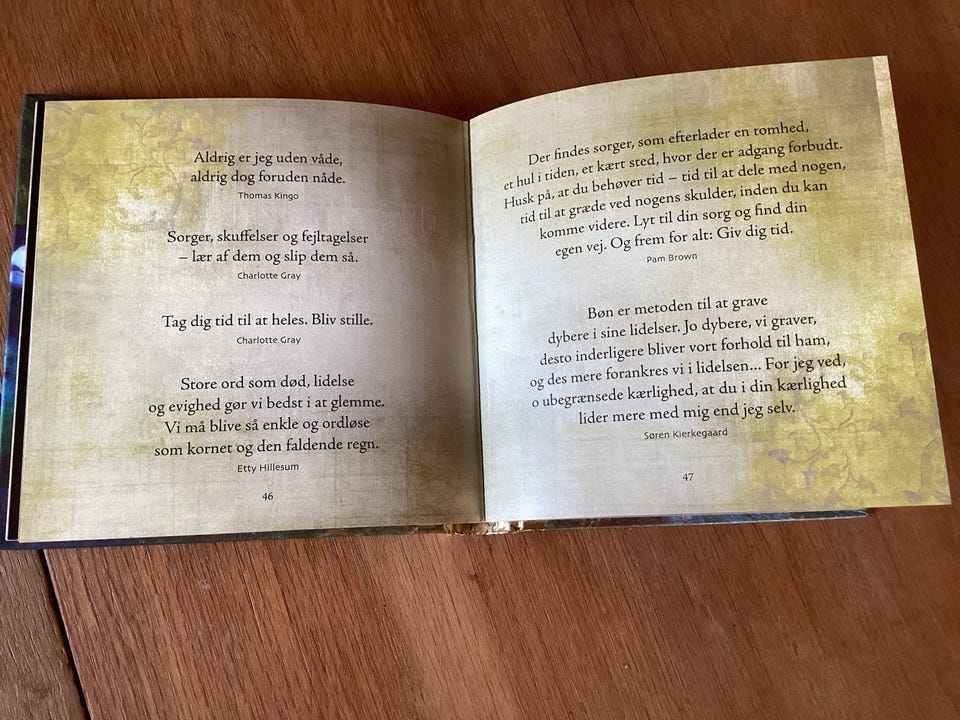 Aldrig er jeg uden våde,
aldrig dog foruden nåde.
Thomas Kingo
Sorger, skuffelser og fejltagelser
– lær af dem og slip dem så.
Charlotte Gray
Tag dig tid til at heles. Bliv stille.
Charlotte Gray
Store ord som død, lidelse
og evighed gør vi bedst i at glemme.
Vi må blive så enkle og ordløse
som kornet og den faldende regn.
Etty Hillesum
46
Der findes sorger, som efterlader en tomhed,
et hul i tiden, et kært sted, hvor der er adgang forbudt.
Husk på, at du behøver tid – tid til at dele med nogen,
tid til at græde ved nogens skulder, inden du kan
komme videre. Lyt til din sorg og find din
egen vej. Og frem for alt: Giv dig tid.
Pam Brown
Bøn er metoden til at grave
dybere i sine lidelser. Jo dybere, vi graver,
desto inderligere bliver vort forhold til ham,
og des mere forankres vi i lidelsen... For jeg ved,
o ubegrænsede kærlighed, at du i din kærlighed
lider mere med mig end jeg selv.
Søren Kierkegaard
47